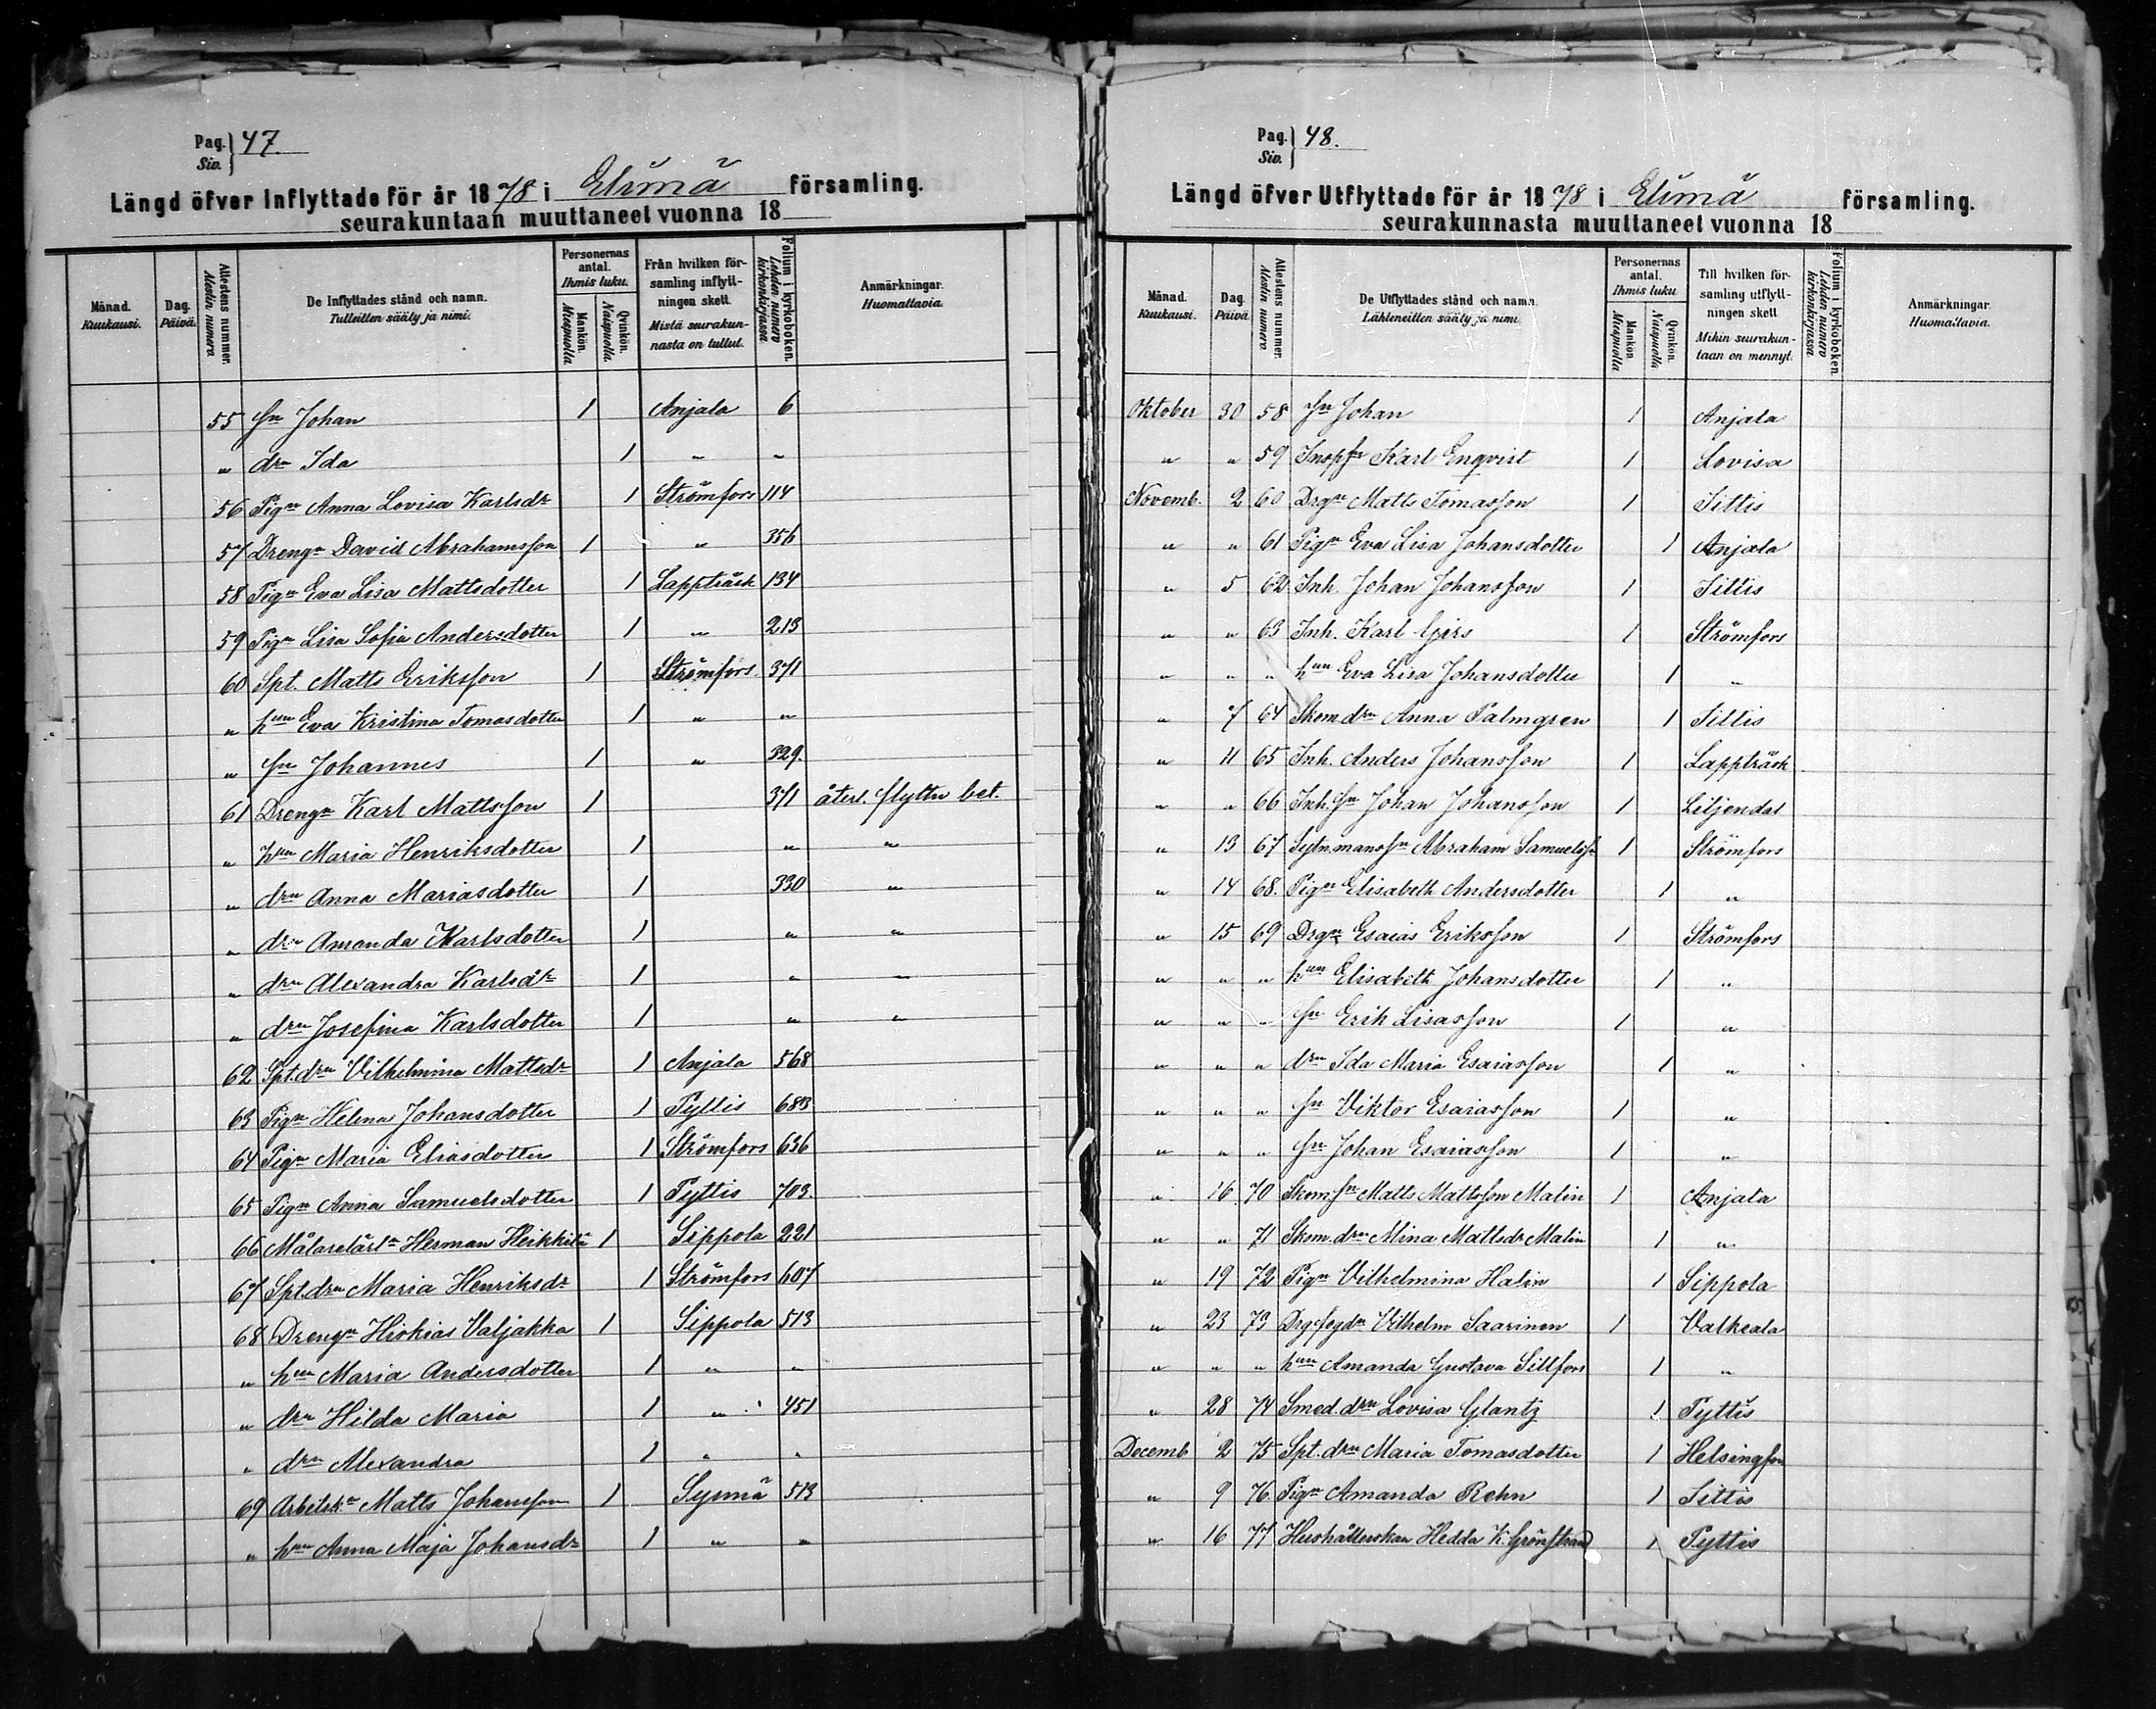 Pag. 47.
Siv.
Längd öfver Inflyttade för år 1878 i Elimä församling.
seurakuntaan muuttaneet vuonna 18
Månad. Kuukausi. Dag. Päivä. Attestens nummer. Alestin numero. De Inflyttades stånd och namn. Tulleitten sääty ja nimi. Personernas antal. Ihmis luku. Mankön. Miespuolia Qvinkön. Naispuolia. Från hvilken församling inflyttningen skett. Mistä seurakunnasta on tullut. Folium i kyrkoboken. Lehden numero kirkonkirjassa. Anmärkningar. Huomattavia.
55 sn Johan 1 Anjala 6
„ drn Ida 1 „ „
56 Pign Anna Lovisa Karlsdr 1 Strömfors 114
57 Drengn David Abrahamsson 1 „ 356
58 Pign Eva Lisa Mattsdotter 1 Lappträsk 134
59 Pign Lisa Sofia Andersdotter 1 „ 213
60 Spt. Matts Eriksson 1 Strömfors 371
„ hun Eva Kristina Tomasdotter 1 „ „
„ sn Johannes 1 „ 329.
61 Drengn Karl Mattsson 1 371 återl. flyttn bet.
„ hun Maria Henriksdotter 1 „ „
„ drn Anna Mariasdotter 1 330 „
„ drn Amanda Karlsdotter 1 „ „
„ drn Alexandra Karlsdr 1 „ „
„ drn Josefina Karlsdotter 1 „ „
62 Spt.drn Vilhelmina Mattsdr 1 Anjala 568
63 Pign Helena Johansdotter 1 Pyttis 683
64 Pign Maria Eliasdotter 1 Strömfors 636
65 Pign Anna Samuelsdotter 1 Pyttis 703.
66 Målarelärln Herman Heikkilä 1 Sippola 221
67 Spt.drn Maria Henriksdr 1 Strömfors 607
68 Drengn Hiskias Valjakka 1 Sippola 513
„ hun Maria Andersdotter 1 „ „
„ drn Hilda Maria 1 „ 451
„ drn Alexandra 1 „ „
69 Arbetsk. Matts Johansson 1 Sysmä 513
„ hun Anna Maja Johansdr 1 „ „
Pag. 48.
Siv.
Längd öfver Utflyttade för år 1878 i Elimä församling.
seurakunnasta muuttaneet vuonna 18
Månad. Kuukausi. Dag. Päivä. Attestens nummer. Alestin numero. De Utflyttades stånd och namn. Lähteneitten sääty ja nimi. Personernas antal. Ihmis luku. Mankön. Miespuolia Qvinkön. Naispuolia Till hvilken församling utflyttningen skett. Mihin seurakuntaan on mennyt. Folium i kyrkoboken. Lehden numero kirkonkirjassa. Anmärkningar. Huomattavia.
Oktober 30 58 sn Johan 1 Anjala
„ „ 59 Karl Enqvist 1 Lovisa
Novemb. 2 60 Drgn Matts Tomasson 1 Sittis
„ „ 61 Pign Eva Lisa Johansdotter 1 Anjala
„ 5 62 Inh. Johan Johansson 1 Sittis
„ „ 63 Inh. Karl Girs 1 Strömfors
„ „ „ hun Eva Lisa Johansdotter 1 „
„ 7 64 Skom.drn Anna Palmgren 1 Sittis
„ 11 65 Inh. Anders Johansson 1 Lappträsk
„ „ 66 Inh.sn Johan Johansson 1 Liljendal
„ 13 67 Sytn.manssn Abraham Samuelss. 1 Strömfors
„ 14 68. Pign Elisabeth Andersdotter 1 „
„ 15 69 Drgn Esaias Eriksson 1 Strömfors
„ „ „ hun Elisabeth Johansdotter 1 „
„ „ „ sn Erik Lisasson 1 „
„ „ „ drn Ida Maria Esaiasson 1 „
„ „ „ sn Viktor Esaiasson 1 „
„ „ „ sn Johan Esaiasson 1 „
„ 16 70 Skom.sn Matts Mattsson Malin 1 Anjala
„ „ 71 Skom.drn Mina Mattsdr Malin 1 „
„ 19 72 Pign Vilhelmina Halin 1 Sippola
„ 23 73 Vilhelm Saarinen 1 Valkeala
„ „ „ hun Amanda Gustava Sillfors 1 „
„ 28 74 Smed.drn Lovisa Glantz 1 Pyttis
Decemb 2 75 Spt.drn Maria Tomasdotter 1 Helsingfors
„ 9 76. Pign Amanda Rehn 1 Sittis
„ 16 77 Hushållerskan Hedda K. Grönstrand 1 Pyttis